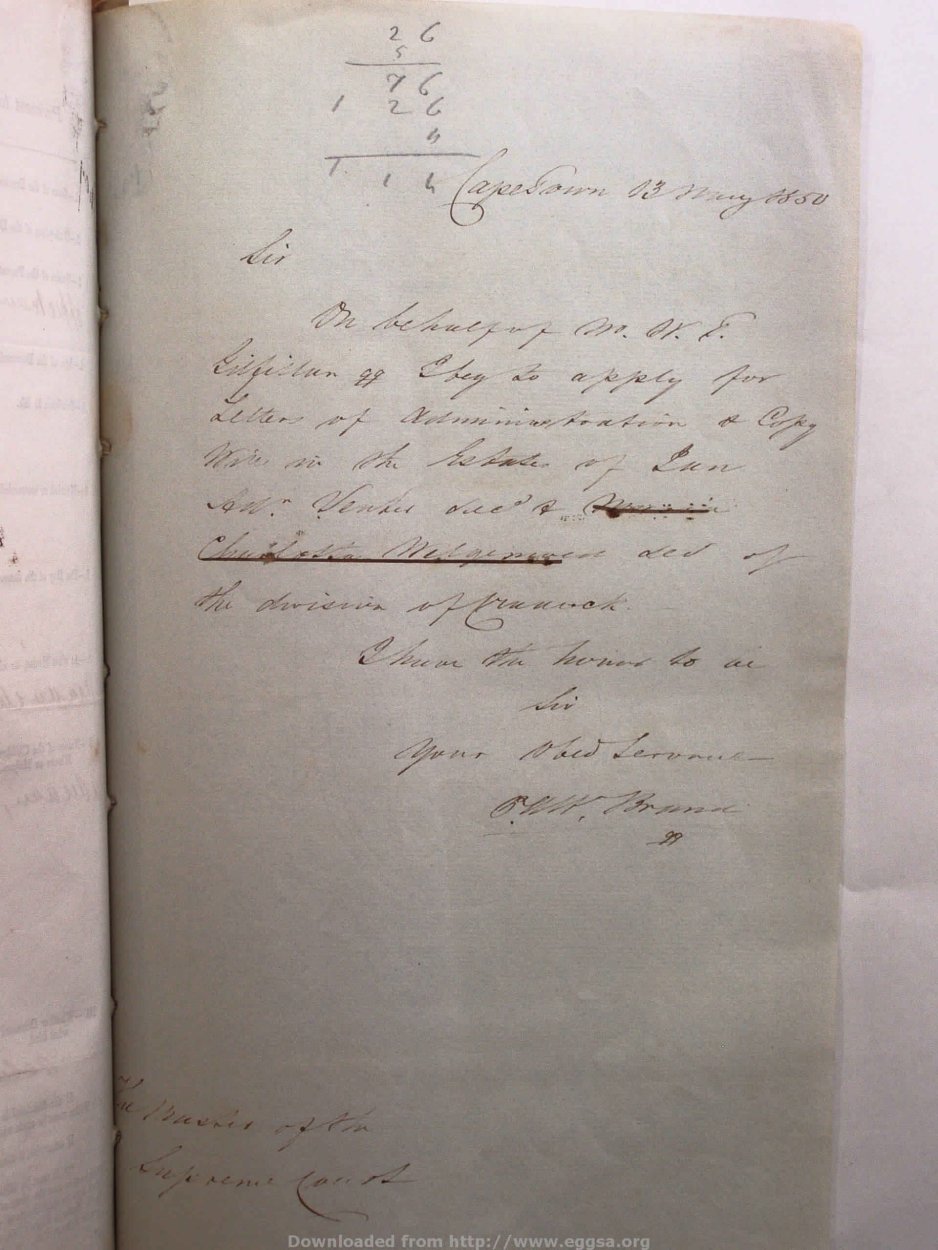 2 6
5
7 6
1 2 6
1 1
Cape Town 13 May 1850
Sir
On behalf of Mr. W. F.
Gilfillan qq I beg to apply for
Letters of Administration & Copy
Will in the Estates of Jan
Venter dec^d &
Charlotta ded of
the division of Cradock.
I have the honor to be
Sir
Your Obed Servant
Brand
qq
The Master of the
Supreme Court
Downloaded from http://www.eggsa.org